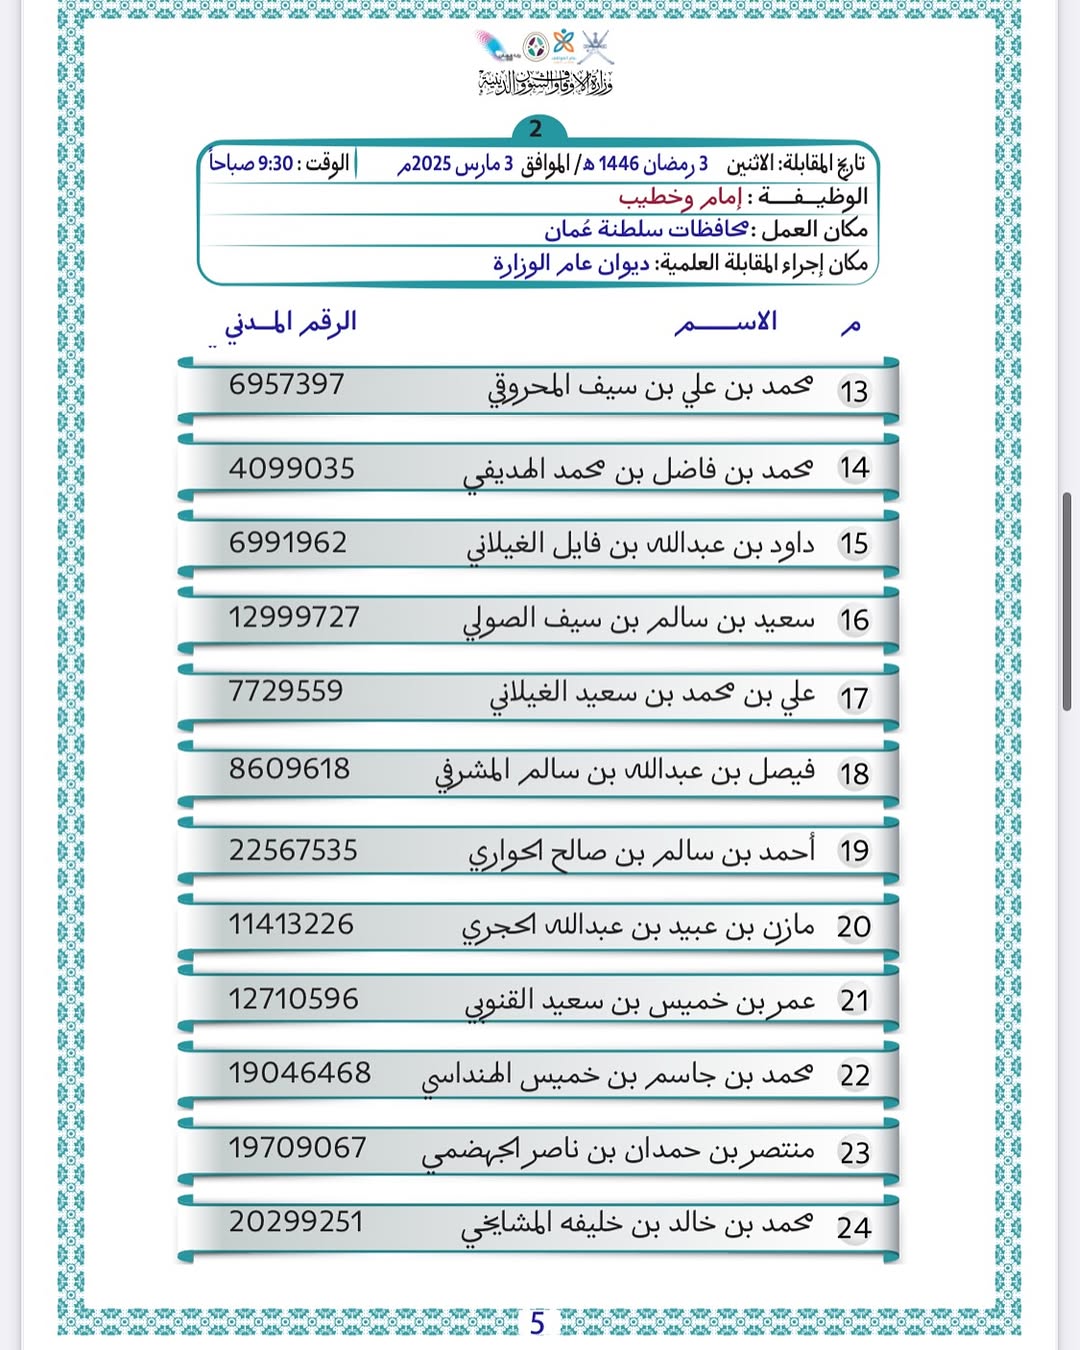 وزارة الأوقاف والشؤون الدينية
2
تاريخ المقابلة: الاثنين 3 رمضان 1446 ه/ الموافق 3 مارس 2025م | الوقت : 9:30 صباحاً
الوظيـفـــة : إمام وخطيب
مكان العمل :محافظات سلطنة عُمان
مكان إجراء المقابلة العلمية: ديوان عام الوزارة
م الاســــم الرقم المـدني
13 محمد بن علي بن سيف المحروقي 6957397
14 محمد بن فاضل بن محمد الهديفي 4099035
15 داود بن عبدالله بن فايل الغيلاني 6991962
16 سعيد بن سالم بن سيف الصولي 12999727
17 علي بن محمد بن سعيد الغيلاني 7729559
18 فيصل بن عبدالله بن سالم المشرفي 8609618
19 أحمد بن سالم بن صالح الحواري 22567535
20 مازن بن عبيد بن عبدالله الحجري 11413226
21 عمر بن خميس بن سعيد القنوبي 12710596
22 محمد بن جاسم بن خميس الهنداسي 19046468
23 منتصر بن حمدان بن ناصر الجهضمي 19709067
24 محمد بن خالد بن خليفه المشايخي 20299251
5